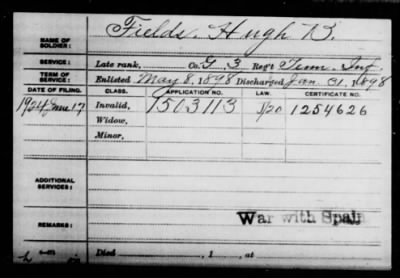 NAME OF SOLDIER: Fields, Hugh B.
SERVICE: Late rank, Co. G, 3 Reg't Tenn. Inf.
TERM OF SERVICE: Enlisted May 8, 1898 Discharged Jan. 31, 1898
DATE OF FILING. CLASS. APPLICATION NO. LAW. CERTIFICATE NO.
1924 17 Invalid, 1503113 1254626
Widow,
Minor,
ADDITIONAL SERVICES:
REMARKS: War with Spain
Died , 1 , at